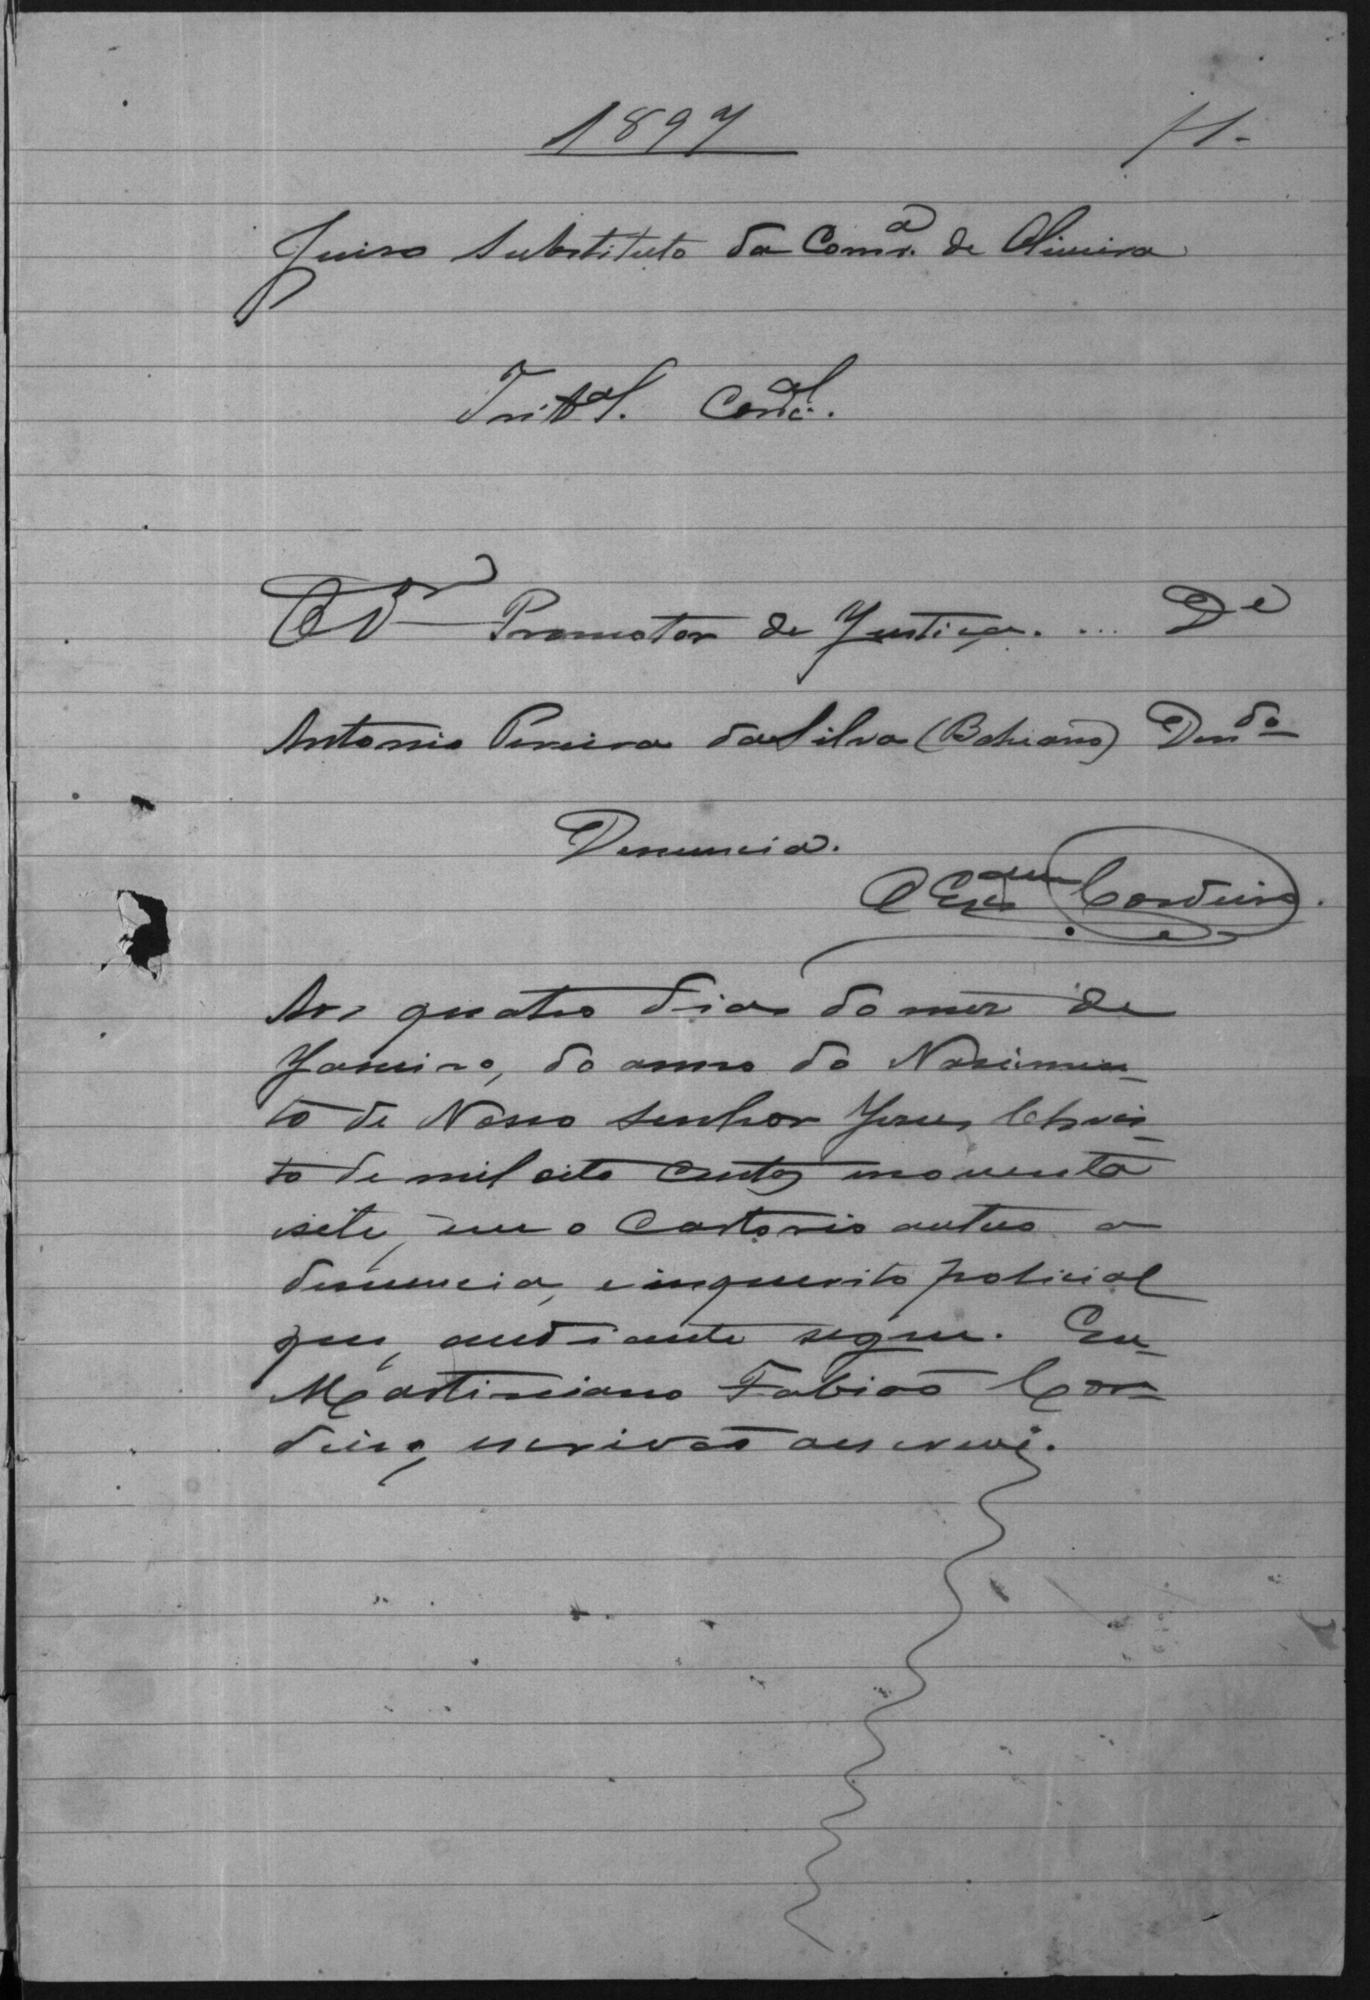 1897
Juizo Substituto da Com.ca de Oliveira
Trib.al Corr.al
O Dor Promotor de Justiça. ... De
Antonio Pereira da Silva (Bahiano) Den.do
Denuncia.
O Escr.am Cordeiro.
Aos quatro dias do mez de
Janeiro, do anno do Nascimen-
to de Nosso Senhor Jesus Chris-
to de mil oito centos e noventa
sete, em o Cartorio autuo a
denuncia, e inquerito policial
que, audiante segue. Eu
Martiniano Fabião Cor-
deiro, escrivão a escrevi.